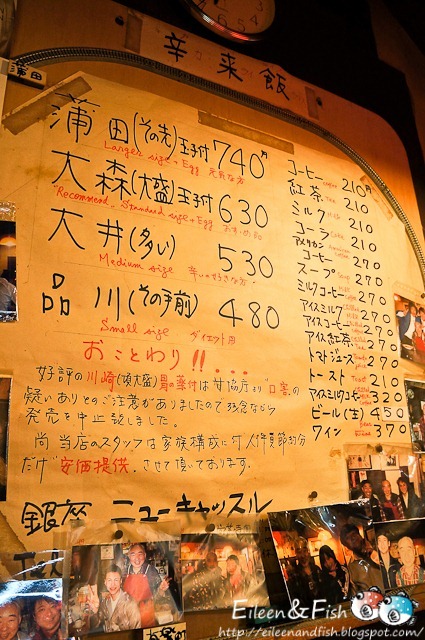 蒲田
辛来飯
蒲田(その先)玉子付 740円
Larger size + Egg
大森(大盛)玉子付 630
"Recommend" Standard size + Egg
大井(多い) 530
Medium size 辛いの好きな方
品川(その手前) 480
Small size ダイエット用
おことわり!!...
好評の川崎(頃大盛)胃の薬付は
疑いありとのご注意がありましたので残念ながら
発売を中止致しました。
尚当店のスタッフは家族構成に付人件費節約分
だけ"安価提供"させて頂いております。
銀座 ニューキャッスル
コーヒー 210円
紅茶 210
ミルク 210
コーラ 210
アメリカンコーヒー 270
スープ 270
ミルクコーヒー 270
アイスミルク 270
アイスコーヒー 270
アイス紅茶 270
トマトジュース 270
トースト 210
アイスミルクコーヒー 320
ビール(生) 450
ワイン 370
Eileen&Fish
http://eileenandfish.blogspot.com/